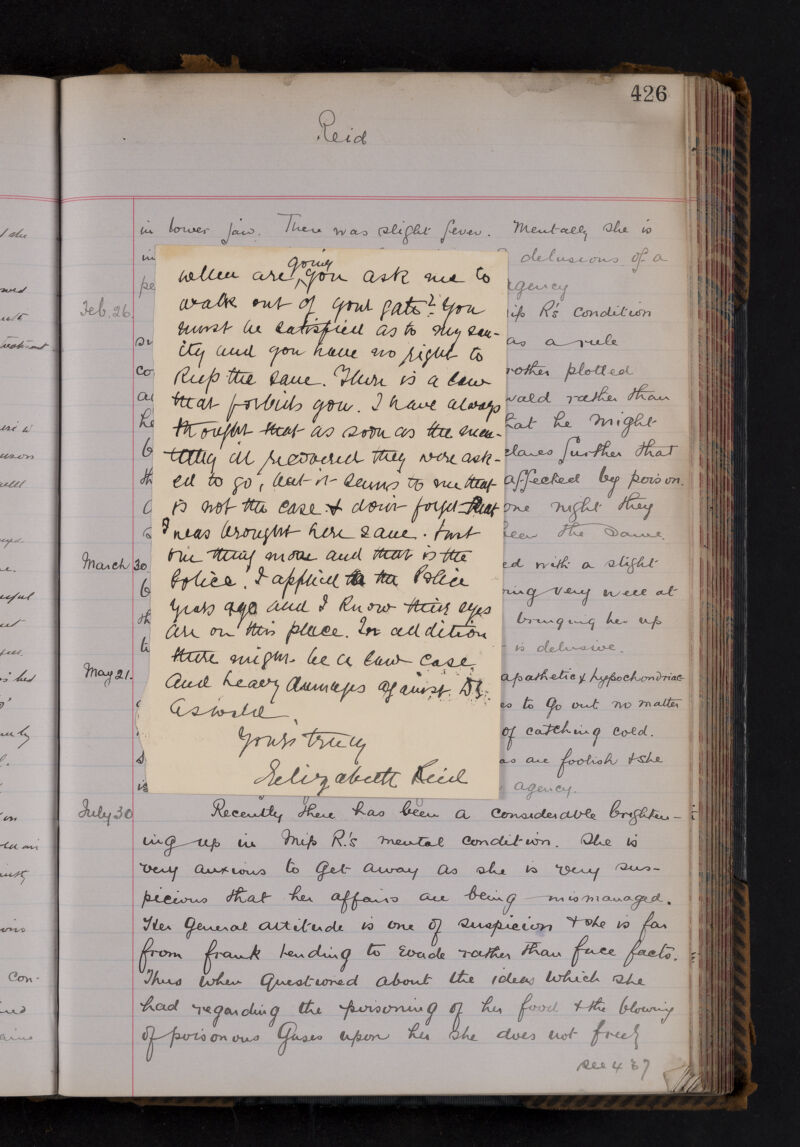 426
Reid
in lower jaw. There was slight fever. Mentally she is
in
delusions of a
pe
agency
Feb. 26.
R's condition
su
as a rule
co
rother plotted
a
wald rather than
he
hat he might
b
clares further that
th
affected by poison.
one night they
been the same.
March 30
ed with a slight
b
ring very well at
th
bringing her up
t
is delusive.
May 21.
apathetic & hypochondriac
es to go out no matter
of catching cold.
as are foolish & she
is
agency.
when are going you ask me to
walk out of your gate? You
must be satisfied as to my san-
ity and you have no right to
keep the sane. There is a law
that forbids you. I have always
thought that as soon as the men-
tally ill recovered they were ask-
ed to go, but it seems to me that
is not the case & don't forget that
I was brought here sane. Just
one thing more and that is the
Police. I applied to the Police
years ago and I know their eyes
are on this place. In addition
there might be a law case
and heavy damages against Dr.
Oswald
Yours truly
Elizabeth Reid
July 30
Recently there has been a considerable brighten-
ing up in Miss R.'s mental condition. She is
very anxious to get away as she is very sus-
picious that her affairs are being mismanaged.
Her general attitude is one of suspicion & she is far
from frank tending to evade rather than face facts.
Thus when questioned about the ideas which she
had regarding the poisoning of her food & the blowing
of poisonous gases upon her she does not freely
see 487